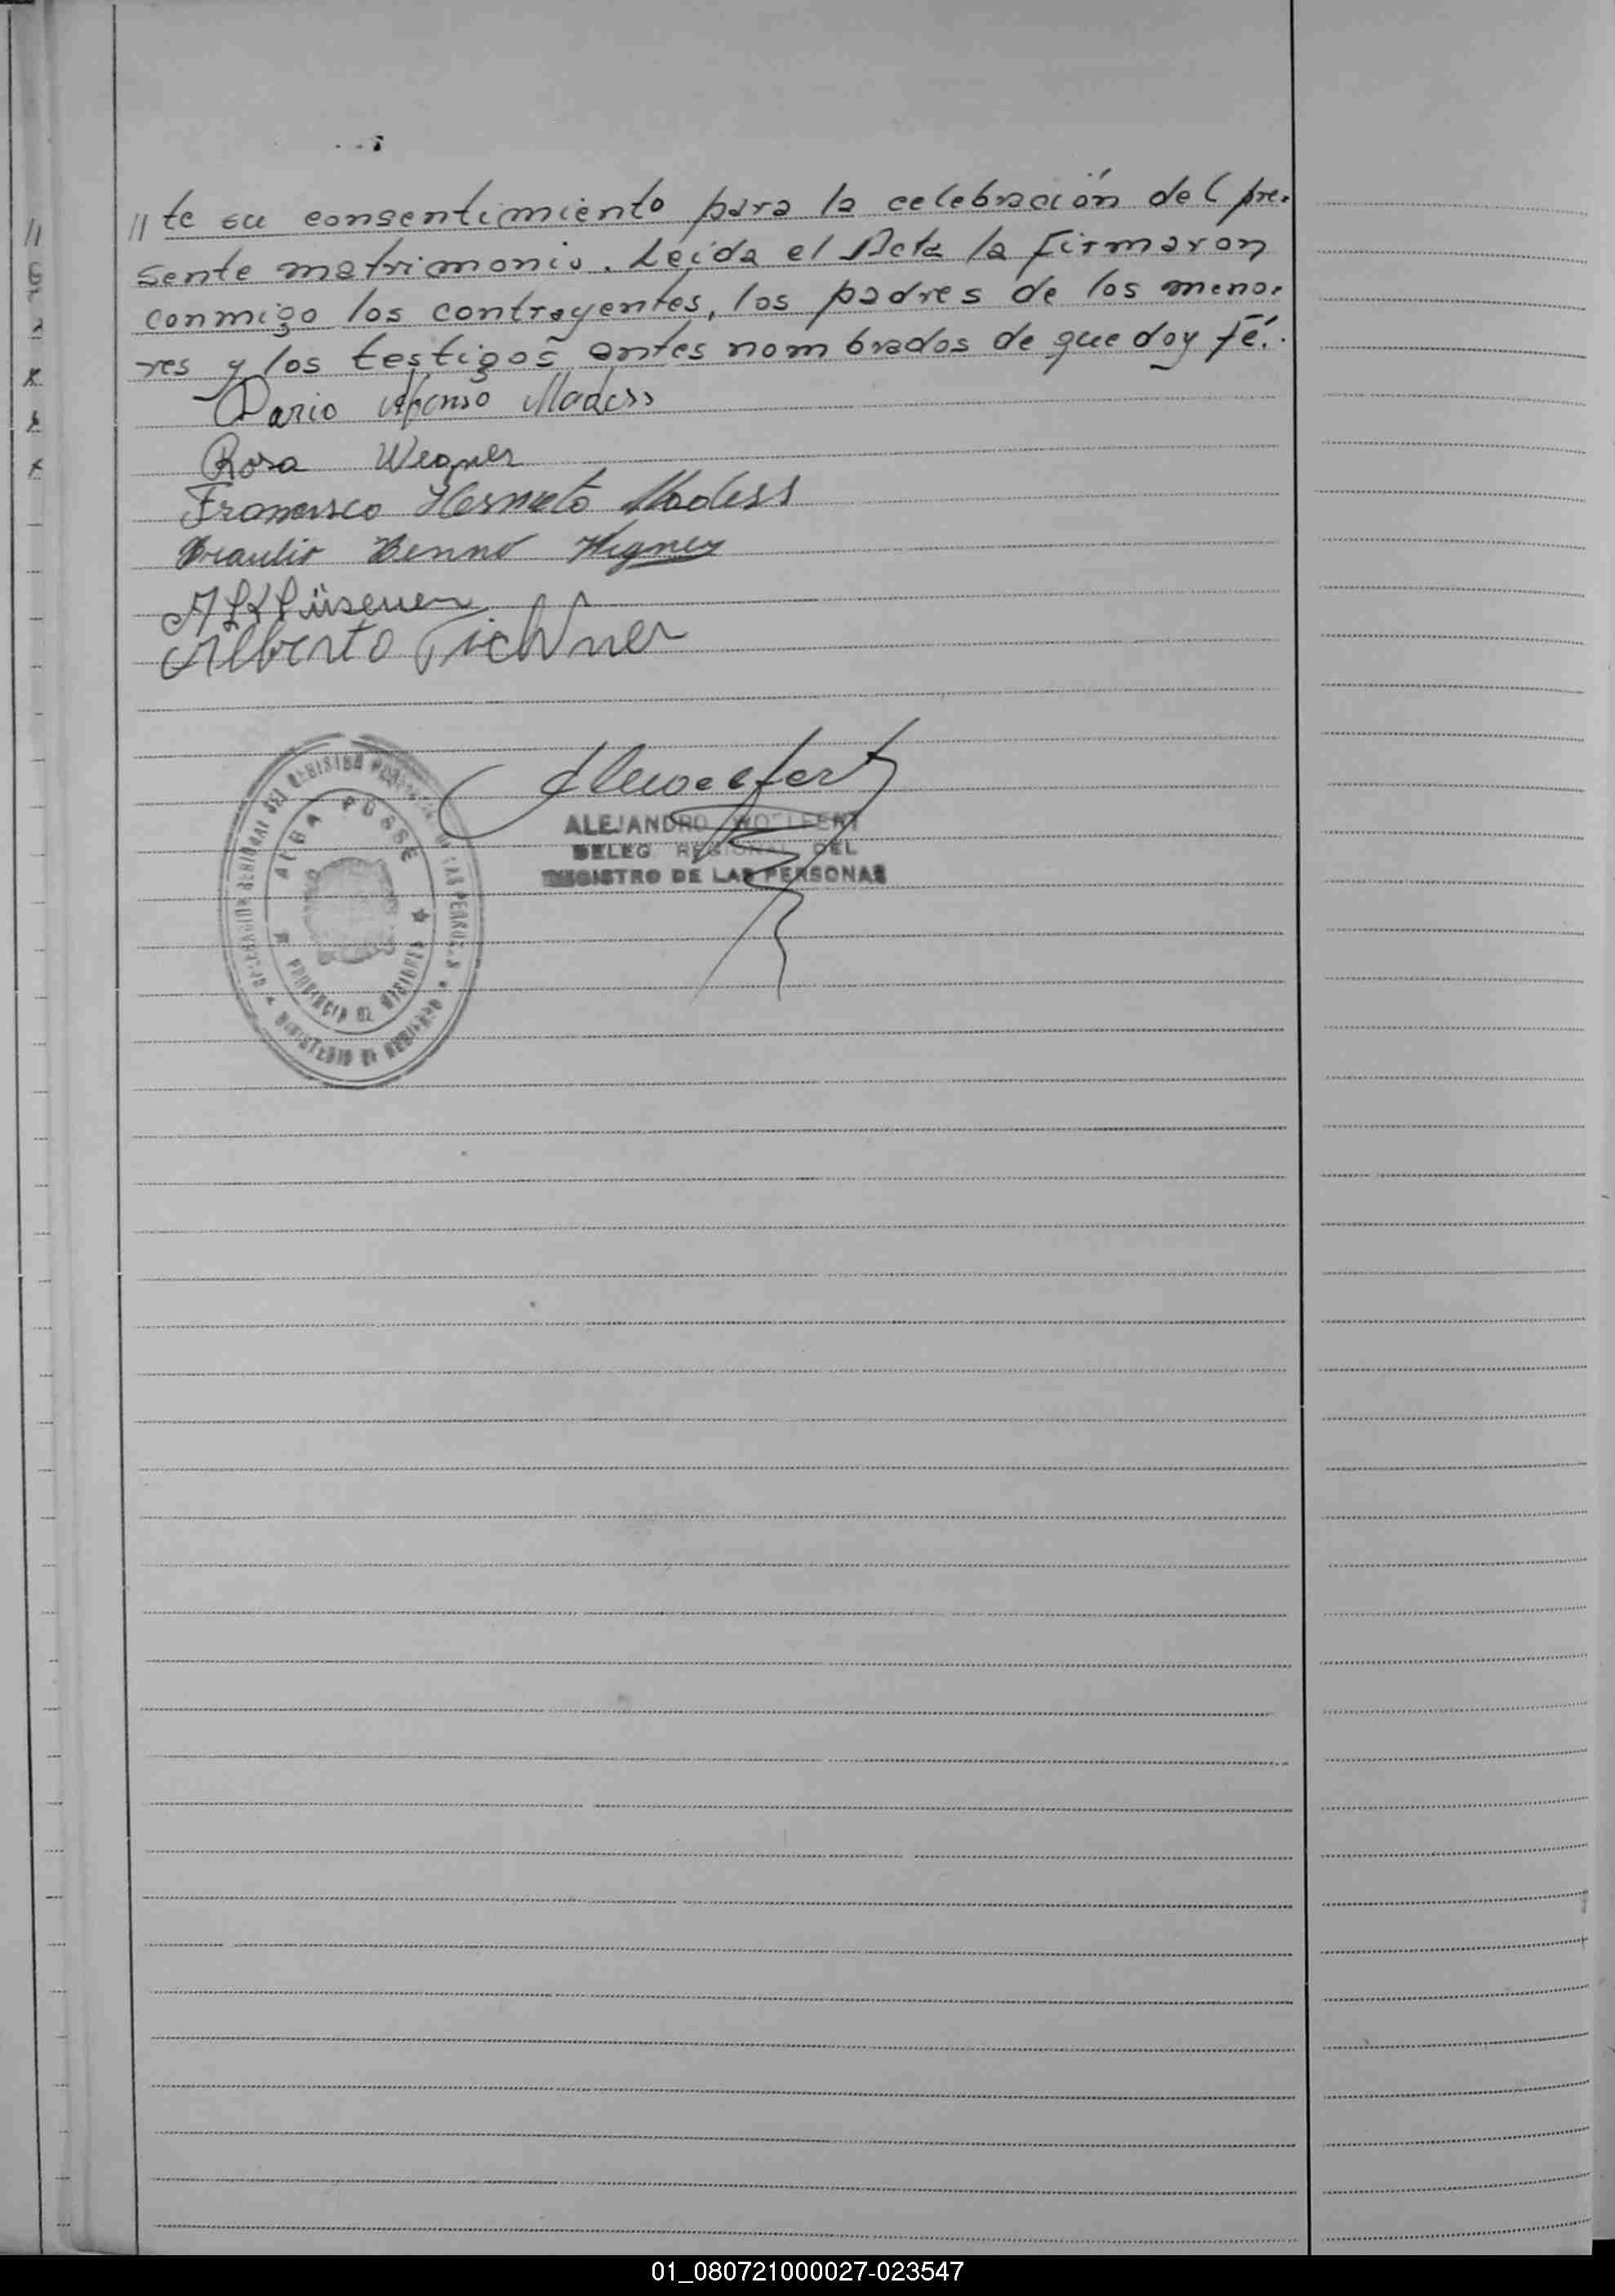 // te su consentimiento para la celebración del pre-
sente matrimonio. Leída el Acta la firmaron
conmigo los contrayentes, los padres de los meno-
res y los testigos antes nombrados de que doy fé.
Dario Afonso
Rosa Wegner
Francisco
Braulio Benno Wegner
Alberto
ALEJANDRO WOELFERT
DELEG. REGIONAL DEL
REGISTRO DE LAS PERSONAS
ALBA POSSE
PROVINCIA DE MISIONES
MINISTERIO DE GOBIERNO
01_080721000027-023547